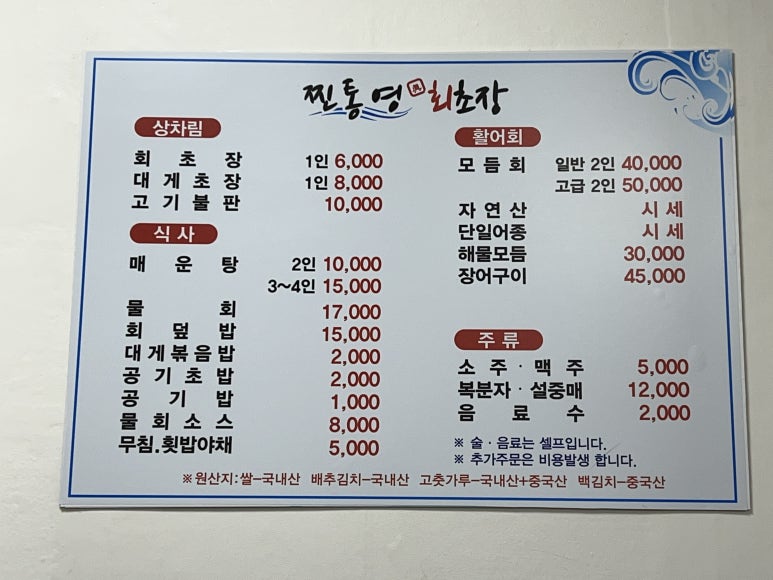 찐통영 회초장
상차림
회초장 1인 6,000
대게초장 1인 8,000
고기불판 10,000
식사
매운탕 2인 10,000
3~4인 15,000
물회 17,000
회덮밥 15,000
대게볶음밥 2,000
공기초밥 2,000
공기밥 1,000
물회소스 8,000
무침.횟밥야채 5,000
활어회
모듬회 일반 2인 40,000
고급 2인 50,000
자연산 시세
단일어종 시세
해물모듬 30,000
장어구이 45,000
주류
소주·맥주 5,000
복분자·설중매 12,000
음료수 2,000
※ 술·음료는 셀프입니다.
※ 추가주문은 비용발생 합니다.
※원산지:쌀-국내산 배추김치-국내산 고춧가루-국내산+중국산 백김치-중국산